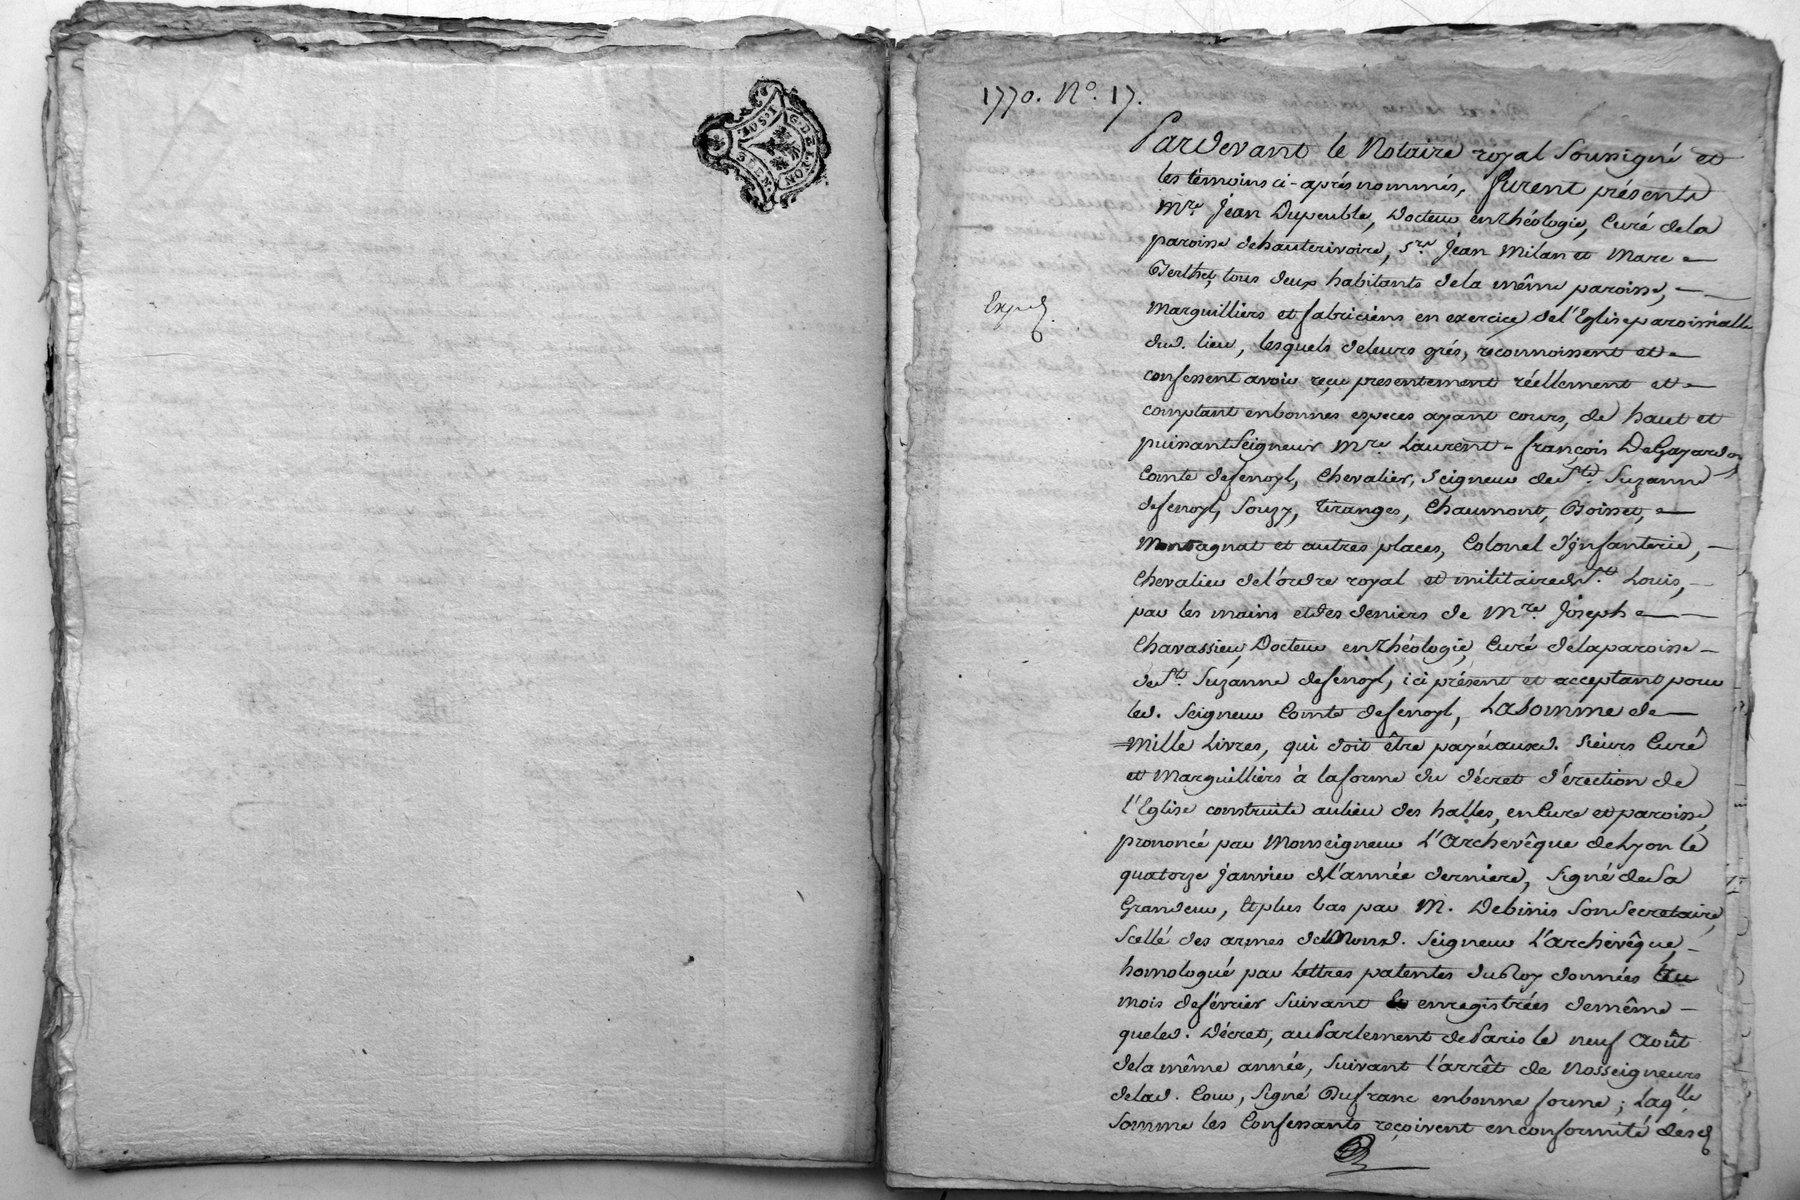 G. DE LYON
2 SOLS
8 DEN
1770. N.º 17.
Pardevant le Notaire royal Soussigné et
les témoins ci-après nommés, furent présents
Mre. Jean Dupeuble, Docteur en Théologie, Curé de la
paroisse de hauterivoire, Srs. Jean Milan et Marc
Berthet, tous deux habitants de la même paroisse,
Expéd.
Marguilliers et fabriciens en exercice de l'Eglise paroissialle
dud. lieu, lesquels de leurs grés, reconnoissent et
confessent avoir reçu presentement réellement et
comptant en bonnes especes ayant cours, de haut et
puissant Seigneur Mre. Laurent-françois De Gayardon,
Comte de fenoyl, Chevalier, Seigneur de Ste. Suzanne
de fenoyl, Souzy, Tiranges, Chaumont, Boisset,
Montagnat et autres places, Colonel d'Jnfanterie,
Chevalier de l'ordre royal et militaire de St. Louis,
par les mains et des deniers de Mre. Joseph
Chavassieu, Docteur en Théologie, Curé de la paroisse
de Ste. Suzanne de fenoyl, ici présent et acceptant pour
led. Seigneur Comte de fenoyl, La Somme de
Mille Livres, qui doit être payée auxd. Sieurs Curé
et Marguilliers à la forme du décret d'érection de
l'Eglise construite au lieu des halles, en Cure et paroisse,
prononcé par Monseigneur L'Archevêque de Lyon le
quatorze Janvier de l'année derniere, Signé de Sa
Grandeur, Et plus bas par M. Debinis Son Secretaire,
Scellé des armes de Mond. Seigneur L'archevêque,
homologué par Lettres patentes du Roy données au
mois de février Suivant enregistrées de même
que led. Décret, au Parlement de Paris le neuf Août
de la même année, Suivant l'arrêt de Nosseigneurs
de lad. Cour, Signé Dufranc en bonne forme; Laqlle
Somme les Confessants reçoivent en conformité desd